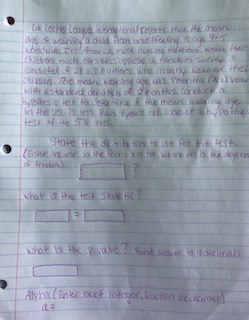 La Leche League International reports that the mean
age of weaning a child from breastfeeding is age 4-5
worldwide. In America most nursing mothers wean their
children much earlier. Suppose a random survey is
conducted of 21 US mothers who recently weaned their
children. The mean weaning age was 9 months (3/4 year)
with a standard deviation of 4 months. Conduct a
hypothesis test to determine if the mean weaning age
in the US is less than 4 years old. Conduct a hypothesis
test at the 5% level.
State the distribution to use for the test.
(Enter answer in the form z or tdf where df is the degrees
of freedom)
?
What is the test statistic?
=
What is the p-value? Round answer to 4 decimals
Alpha (Enter exact integer, fraction or decimal)
a=